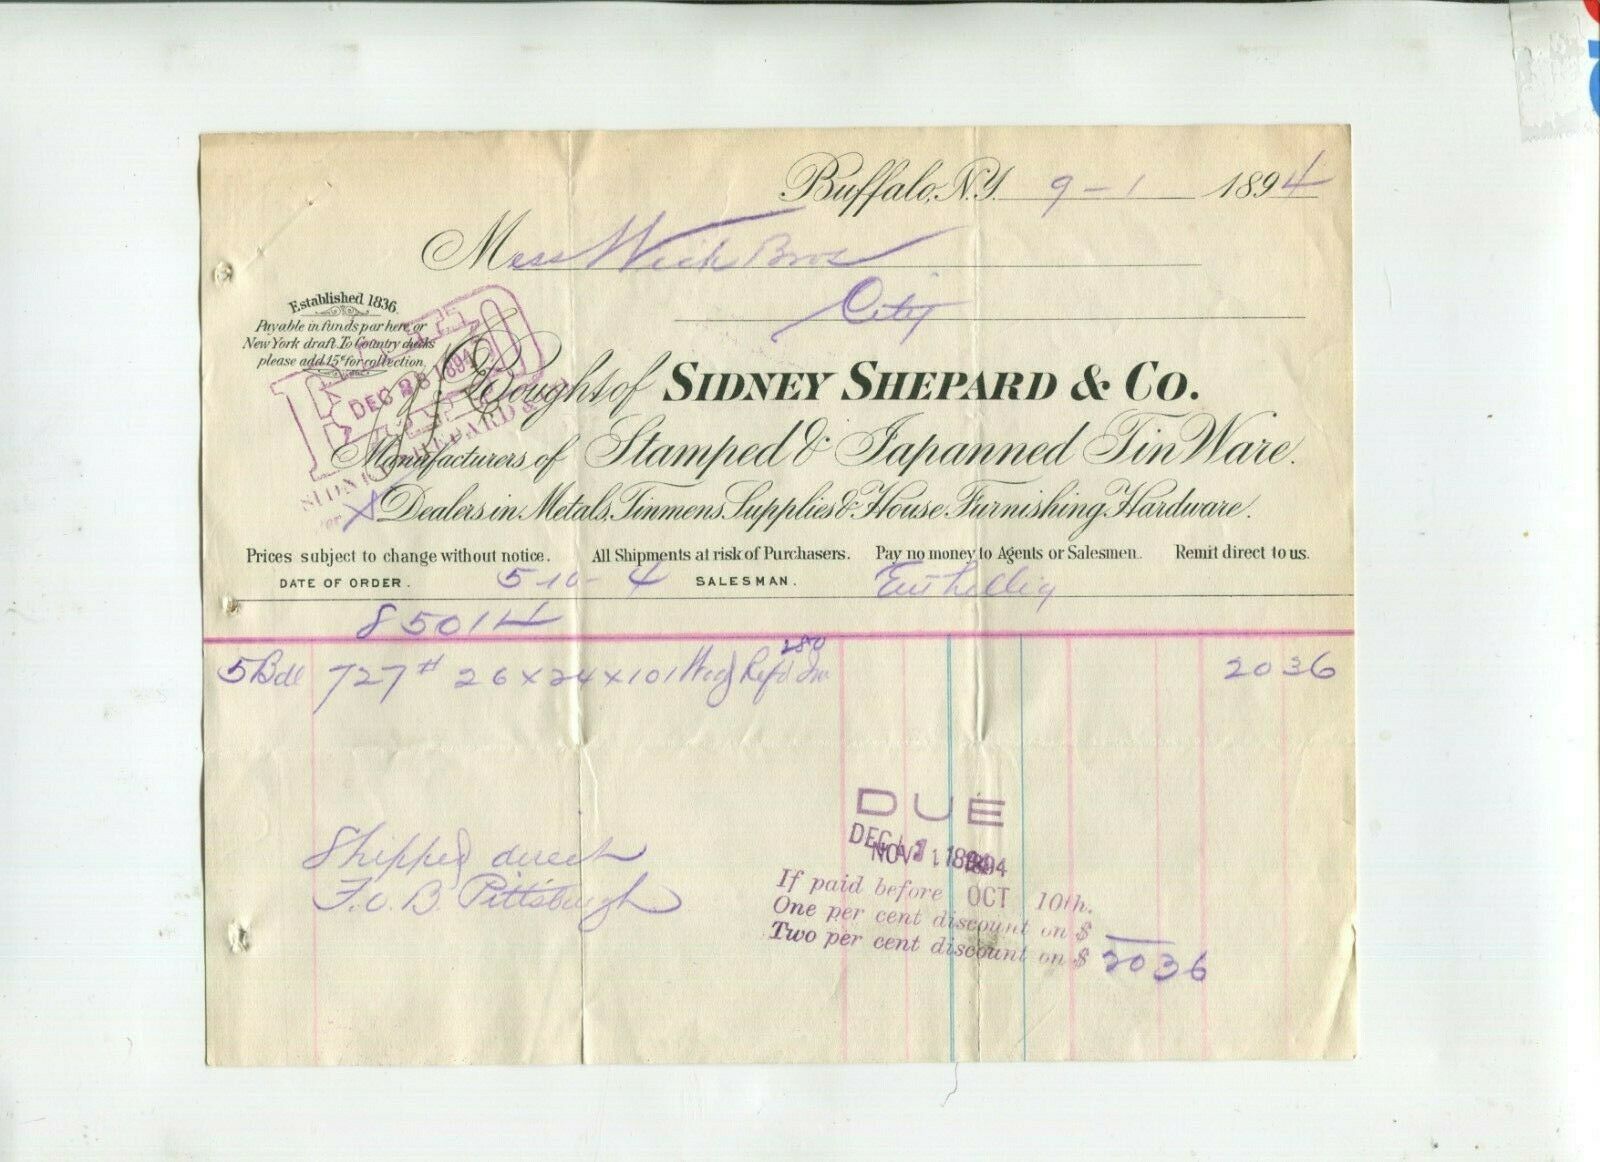 Buffalo, N.Y. 9-1 1894
Mess Wick Bros
City
Established 1836.
Payable in funds par here, or
New York draft. To Country checks
please add 15¢ for collection.
PAID
DEC 28 1894
SIDNEY SHEPARD &
Per
Bought of SIDNEY SHEPARD & CO.
Manufacturers of Stamped & Japanned Tin Ware.
Dealers in Metals, Tinmens Supplies & House Furnishing Hardware.
Prices subject to change without notice. All Shipments at risk of Purchasers. Pay no money to Agents or Salesmen. Remit direct to us.
DATE OF ORDER. 5-10-4 SALESMAN.
85014
280
5 Bdl 727# 26 x 24 x 101 2036
Shipped direct
F.O.B. Pittsburgh
DUE
DEC 1894
NOV 1 1894
If paid before OCT 10th.
One per cent discount on $
Two per cent discount on $ 2036